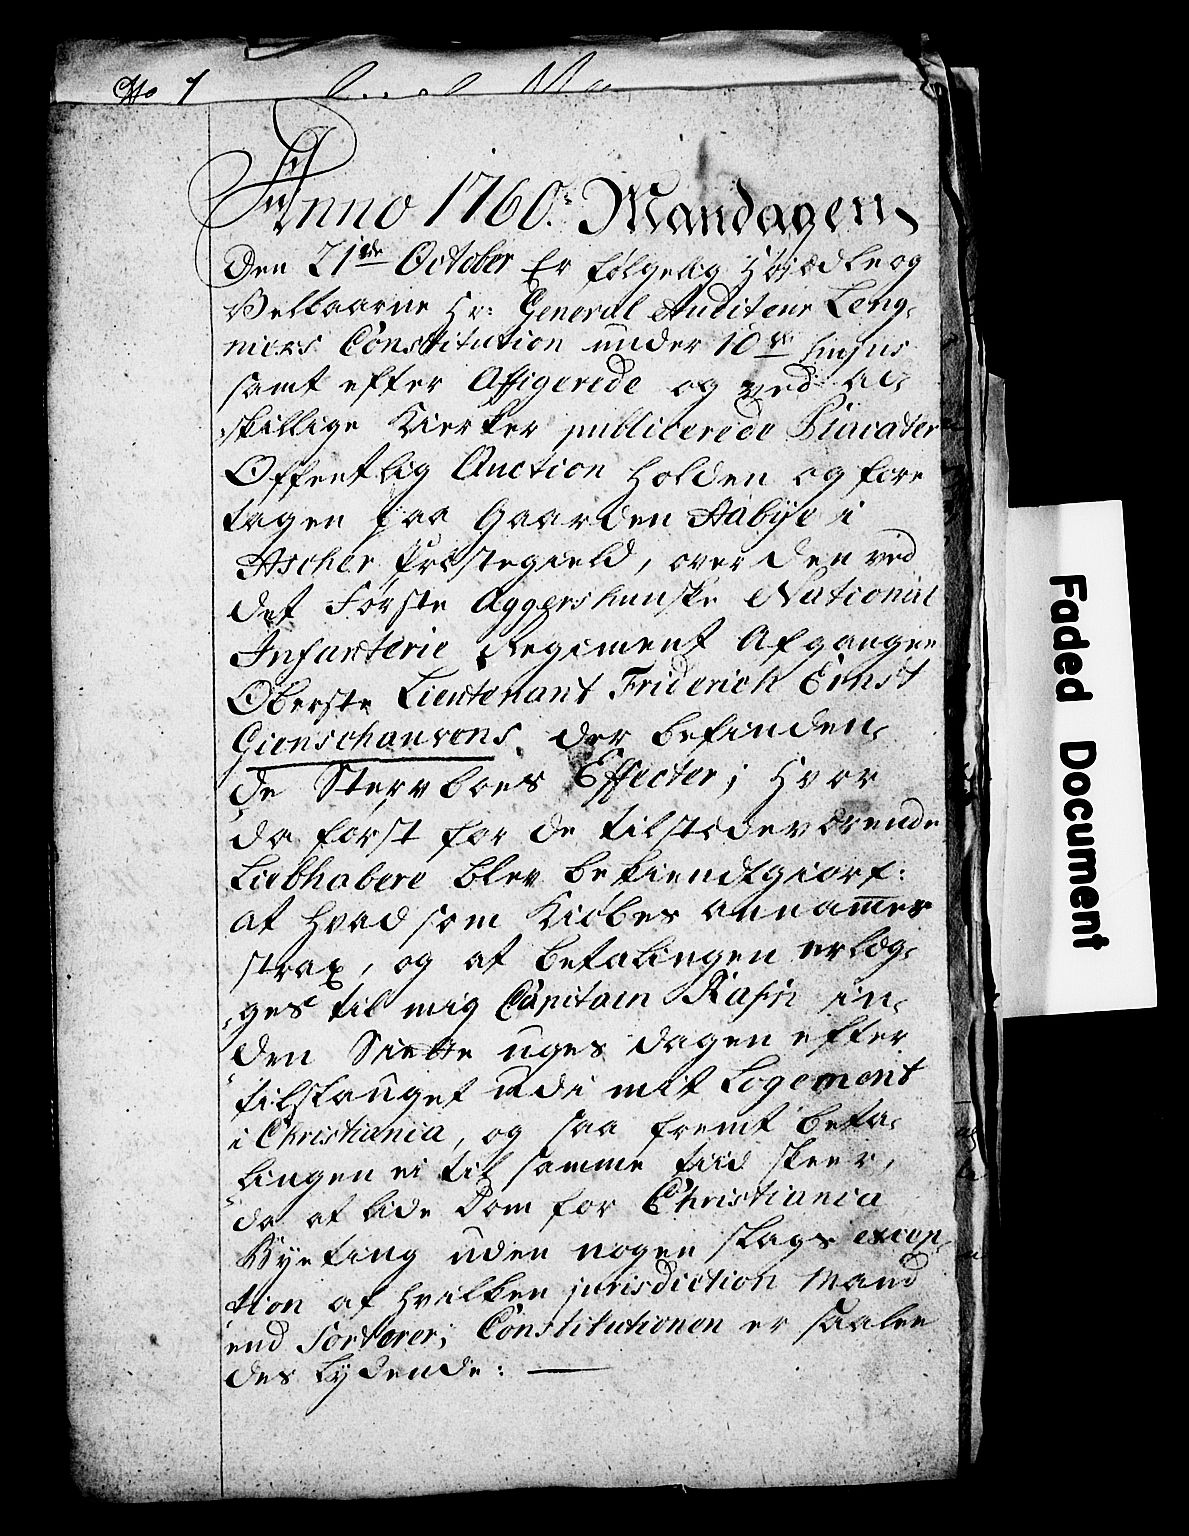 No 7
Anno 1760. Mandagen
Den 21de October Er følgelig Høyædle og
Velbaarne Hr: General Auditeur Leng-
nicks Constitution under 10de hujus
samt efter Affigerede og ved ad-
skillige Kierker publicerede Placater
Offentlig Auction holden og fore
tagen paa Gaarden Aabÿe i
Ascher Præstegield, over den ved
det Første Aggershusiske National
Infanterie Regiment Afgangen
Oberste Lieutenant Friderich Ernst
Gienschauvens der befinden-
de Stervboes Effecter; Hvor
da først for de tilstedeværende
Liebhabere blev bekiendtgiort:
at hvad som Kiøbes annammes
strax, og at betalingen erlæg-
ges til mig Capitain Rasch in-
den Siette uges dagen efter
tilslauget udi mit Logement
i Christiania, og saa fremt beta-
lingen ei til samme tiid skeer,
da at lide Dom for Christiania
Byeting uden nogen slags excep-
tion af hvilken jurisdiction Mand
end Sorterer; Constitutionen er saale
des lydende:
Faded Document